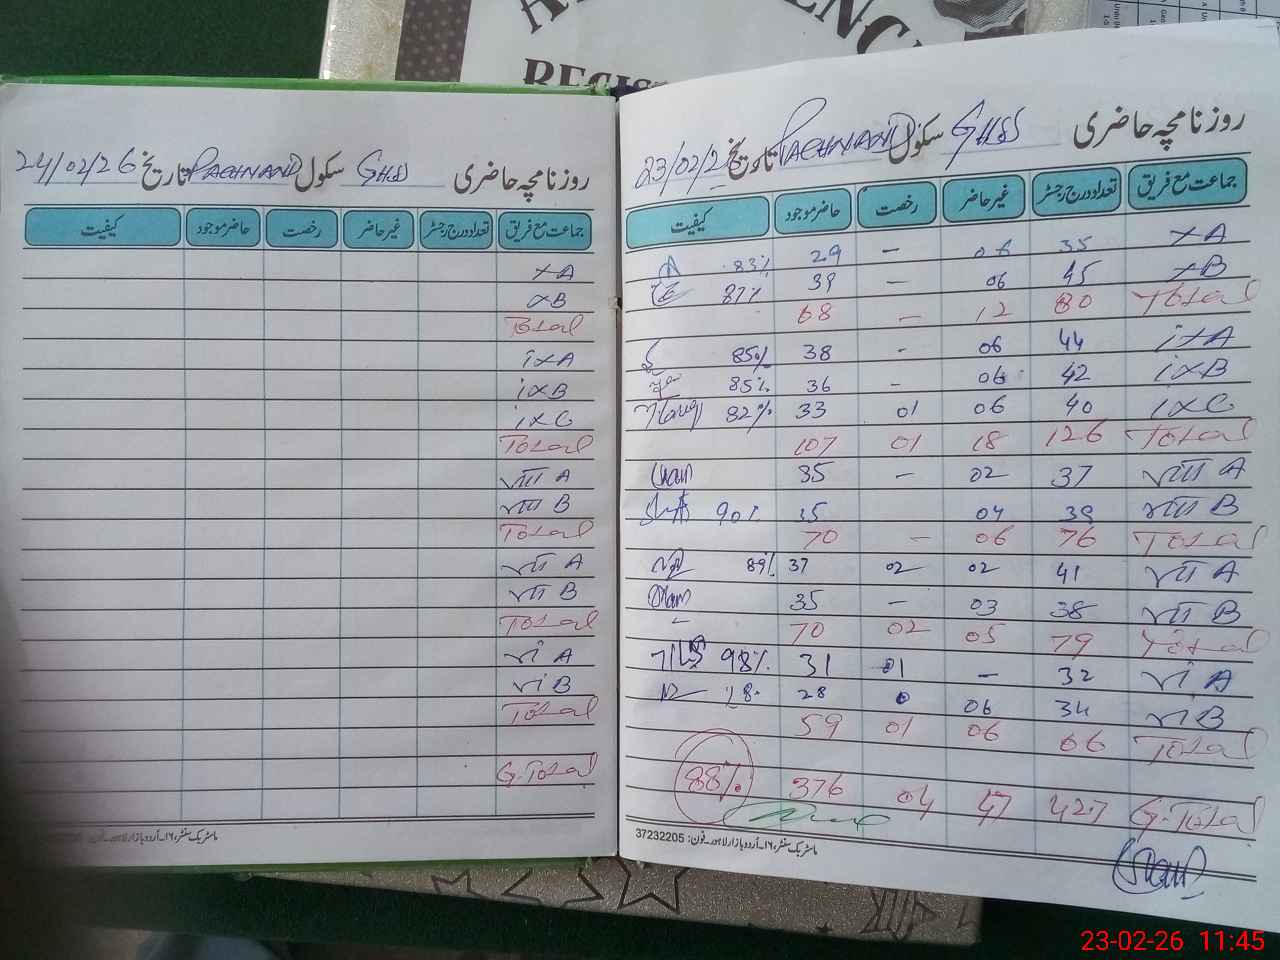 REGIS
روزنامچہ حاضری GHSS سکول PACHNAND تاریخ 24/02/26
جماعت مع فریق تعداد درج رجسٹر غیر حاضر رخصت حاضر موجود کیفیت
XA
XB
Total
iXA
iXB
iXC
Total
VIII A
VIII B
Total
VII A
VII B
Total
Vi A
Vi B
Total
G.Total
ماسٹر بک سنٹر، ۱۶۔اُردو بازار لاہور۔فون:
روزنامچہ حاضری GHSS سکول PACHNAND تاریخ 23/02/26
جماعت مع فریق تعداد درج رجسٹر غیر حاضر رخصت حاضر موجود کیفیت
XA 35 06 — 29 83%
XB 45 06 — 39 87%
Total 80 12 — 68
iXA 44 06 - 38 85%
iXB 42 06 - 36 85%
iXC 40 06 01 33 82%
Total 126 18 01 107
VIII A 37 02 - 35
VIII B 39 04 35 90%
Total 76 06 - 70
VII A 41 02 02 37 89%
VII B 38 03 - 35
Total 79 05 02 70
Vi A 32 - 01 31 98%
Vi B 34 06 0 28
Total 66 06 01 59
G.Total 427 47 04 376 88%
ماسٹر بک سنٹر، ۱۶۔اُردو بازار لاہور۔فون: 37232205
23-02-26 11:45